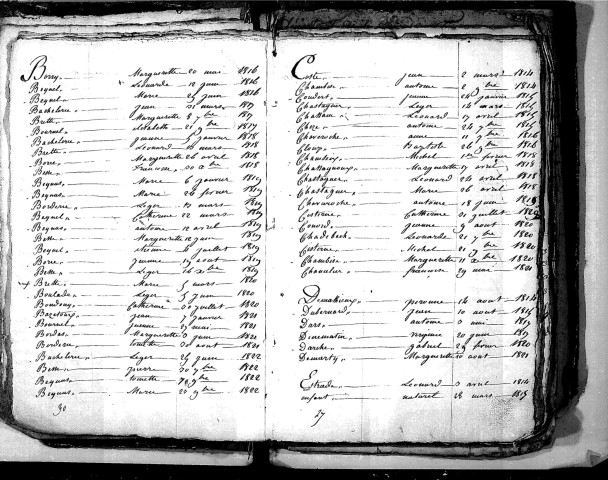 Borry Marguerette 20 mai 1816
Beynel Leonarde 12 juin 1816
Beynel Marie 25 juin 1816
Bachelerie jean mars 1817
Butte Marguerette 8 7bre 1817
Elisabette 21 7bre 1817
Bachelerie jeanne 5 janvier 1818
Brette Leonard mars 1818
Borie Marguerette 26 avril 1818
Bette Francoise 30 xbre 1818
Beynas Marie 6 janvier 1819
Beynas Marie 24 fevrer 1819
Borderie Leger 11 mars 1819
Beynel Catherine 12 mars 1819
Beynas antoine 12 avril 1819
Bette Marguerette 12 juin 1819
Beynel juillet 1819
Borie jeanne 19 aout 1819
Bette Leger 26 xbre 1819
Brette Marie 5 mars 1820
Boulada Leger 5 juin 1820
Boudoux Catherine 30 juillet 1820
Bazetoux jean 7 janvier 1821
Bournel jeanne 15 mai 1821
Bordas Marguerette 5 juin 1821
Borderie toinette 30 aout 1821
Bachelerie Leger 25 juin 1822
Bette pierre 30 7bre 1822
Beynas toinette 9bre 1822
Beynas Marie 22 9bre 1822
30
Coste jean 2 mars 1814
Chambise antoine 2 8bre 1814
Coudert jeanne 24 janvier 1815
Chastagner Leger 14 mars 1815
Chattau Leonard 17 avril 1815
Chize antoine 24 7bre 1815
Chavaroche anne 11 8bre 1816
Cloup Baptiste 26 8bre 1816
Chambery Michel 1er fevrer 1818
Chattagnoux Marguerette 17 avril 1818
Chastagner Leonard 24 avril 1818
Chastagner Marie 26 avril 1818
Chavaroche antoine 18 juin 1819
Costerie Catherine 31 juillet 1820
jeanne 9 aout 1820
Chadebech Leonarde 21 7bre 1820
Costerie Michel 21 9bre 1820
Chambise Marguerette 11 xbre 1820
Chanelier francoise 29 mai 1821
peronne 14 aout 1814
Dubernard jean 10 aout 1815
Dars antoine 3 mai 1819
Dinematin 20 juin 1819
Darche gabriel 29 fevrer 1820
Demarty Marguerette 20 aout 1821
Estrade Leonard 3 avril 1814
enfant naturel 28 mars 1815
27